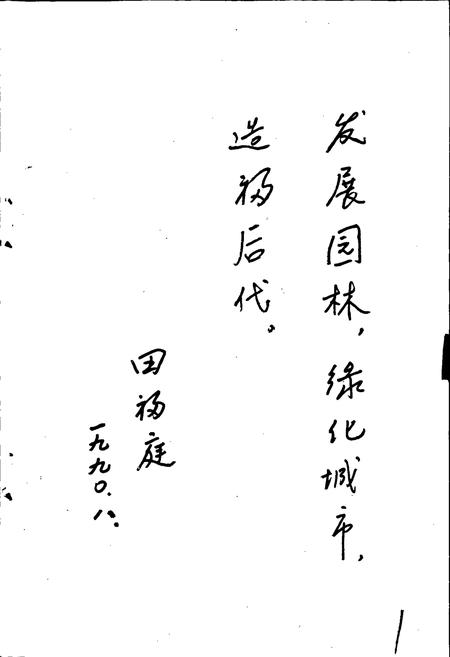 发展园林,綠化城市,
造福后代。
田福庭
一九九〇.八.